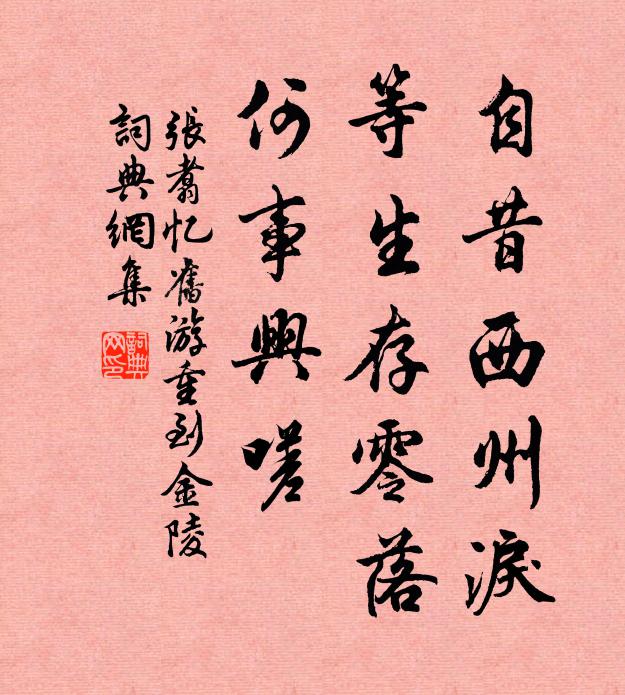 自昔西州淚
等生存零落
何事興嗟
張翥忆舊游重到金陵
詞典網集
詞典
网印